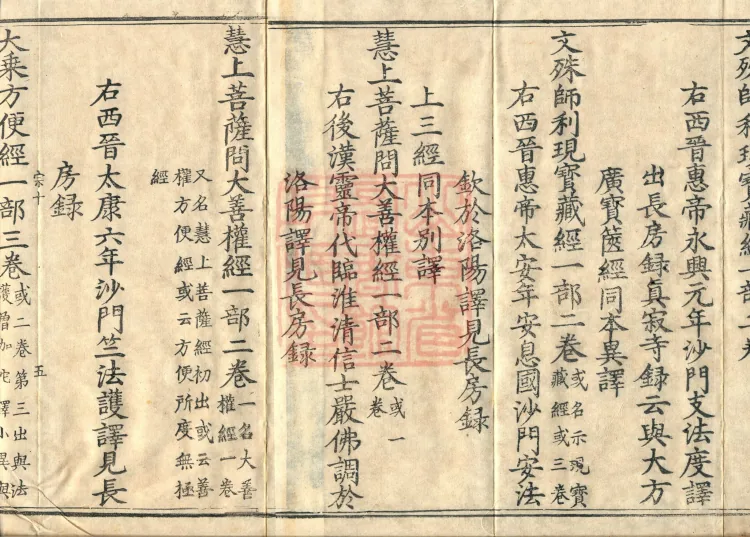 文殊師利現寶藏經一部
右西晉惠帝永興元年沙門支法度譯
出長房録真寂寺録云與大方
廣寶篋經同本異譯
文殊師利現寶藏經一部二卷
或名示現寶
藏經或三卷
右西晉惠帝太安年安息國沙門安法
欽於洛陽譯見長房録
上三經同本別譯
慧上菩薩問大善權經一部二卷
或一
卷
右後漢靈帝代臨淮清信士嚴佛調於
洛陽譯見長房録
慧上菩薩問大善權經一部二卷
一名大善
權經一卷
又名慧上菩薩經初出或云善
權方便經或云方便所度無極
經
右西晉太康六年沙門竺法護譯見長
房録
宗十 五
大乗方便經一部三卷
或二卷第三出與法
護僧加陀譯小異與